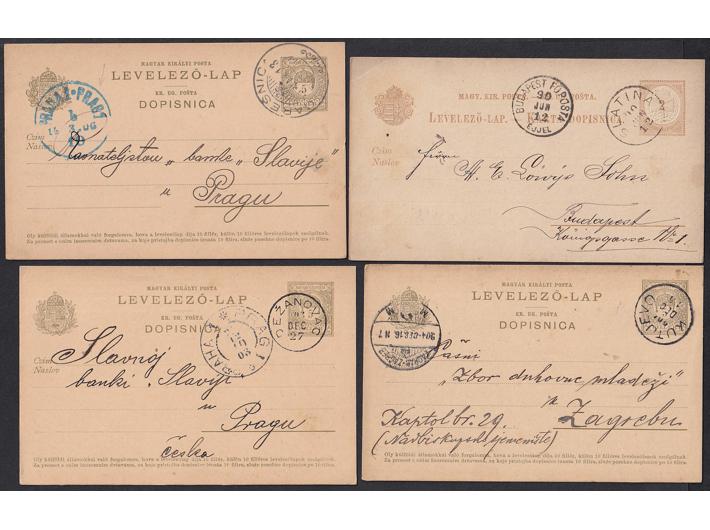 MAGYAR KIRÁLYI POSTA
LEVELEZŐ-LAP
KR. UG. POŠTA
DOPISNICA
PRAHA 1 PRAG 1
Czim
Naslov
banke „Slavije"
u
Pragu
Oly külföldi államokkal való forgalomra, hova a levelezőlap díja 10 fillér, külön 10 filléres levelezőlapok szolgálnak.
Za promet s onim inozemnim državama, za koje pristojba dopisnice iznaša 10 filira, služe posebne dopisnice po 10 filira.
MAGY. KIR. POSTA. KR. UG. POŠTA.
LEVELEZŐ-LAP. KARTA DOPISNICA.
BUDAPEST FŐPOSTA
90
JUN
12
EJJEL
SLATINA
Czim
Naslov
A. E. Löwy's Sohn
Budapest
Königsgasse No 1.
MAGYAR KIRÁLYI POSTA
LEVELEZŐ-LAP
KR. UG. POŠTA
DOPISNICA
PRAHA 1 PRAG 1
DEŽANOVAC
DEC
27
Czim
Naslov
Slavnoj
banki „Slaviji"
u
Pragu
Česka
Oly külföldi államokkal való forgalomra, hova a levelezőlap díja 10 fillér, külön 10 filléres levelezőlapok szolgálnak.
Za promet s onim inozemnim državama, za koje pristojba dopisnice iznaša 10 filira, služe posebne dopisnice po 10 filira.
MAGYAR KIRÁLYI POSTA
LEVELEZŐ-LAP
KR. UG. POŠTA
DOPISNICA
KUTJEVO
„Zbor duhovne mladeži"
Zagrebu
Kaptol br. 29.
Oly külföldi államokkal való forgalomra, hova a levelezőlap díja 10 fillér, külön 10 filléres levelezőlapok szolgálnak.
Za promet s onim inozemnim državama, za koje pristojba dopisnice iznaša 10 filira, služe posebne dopisnice po 10 filira.